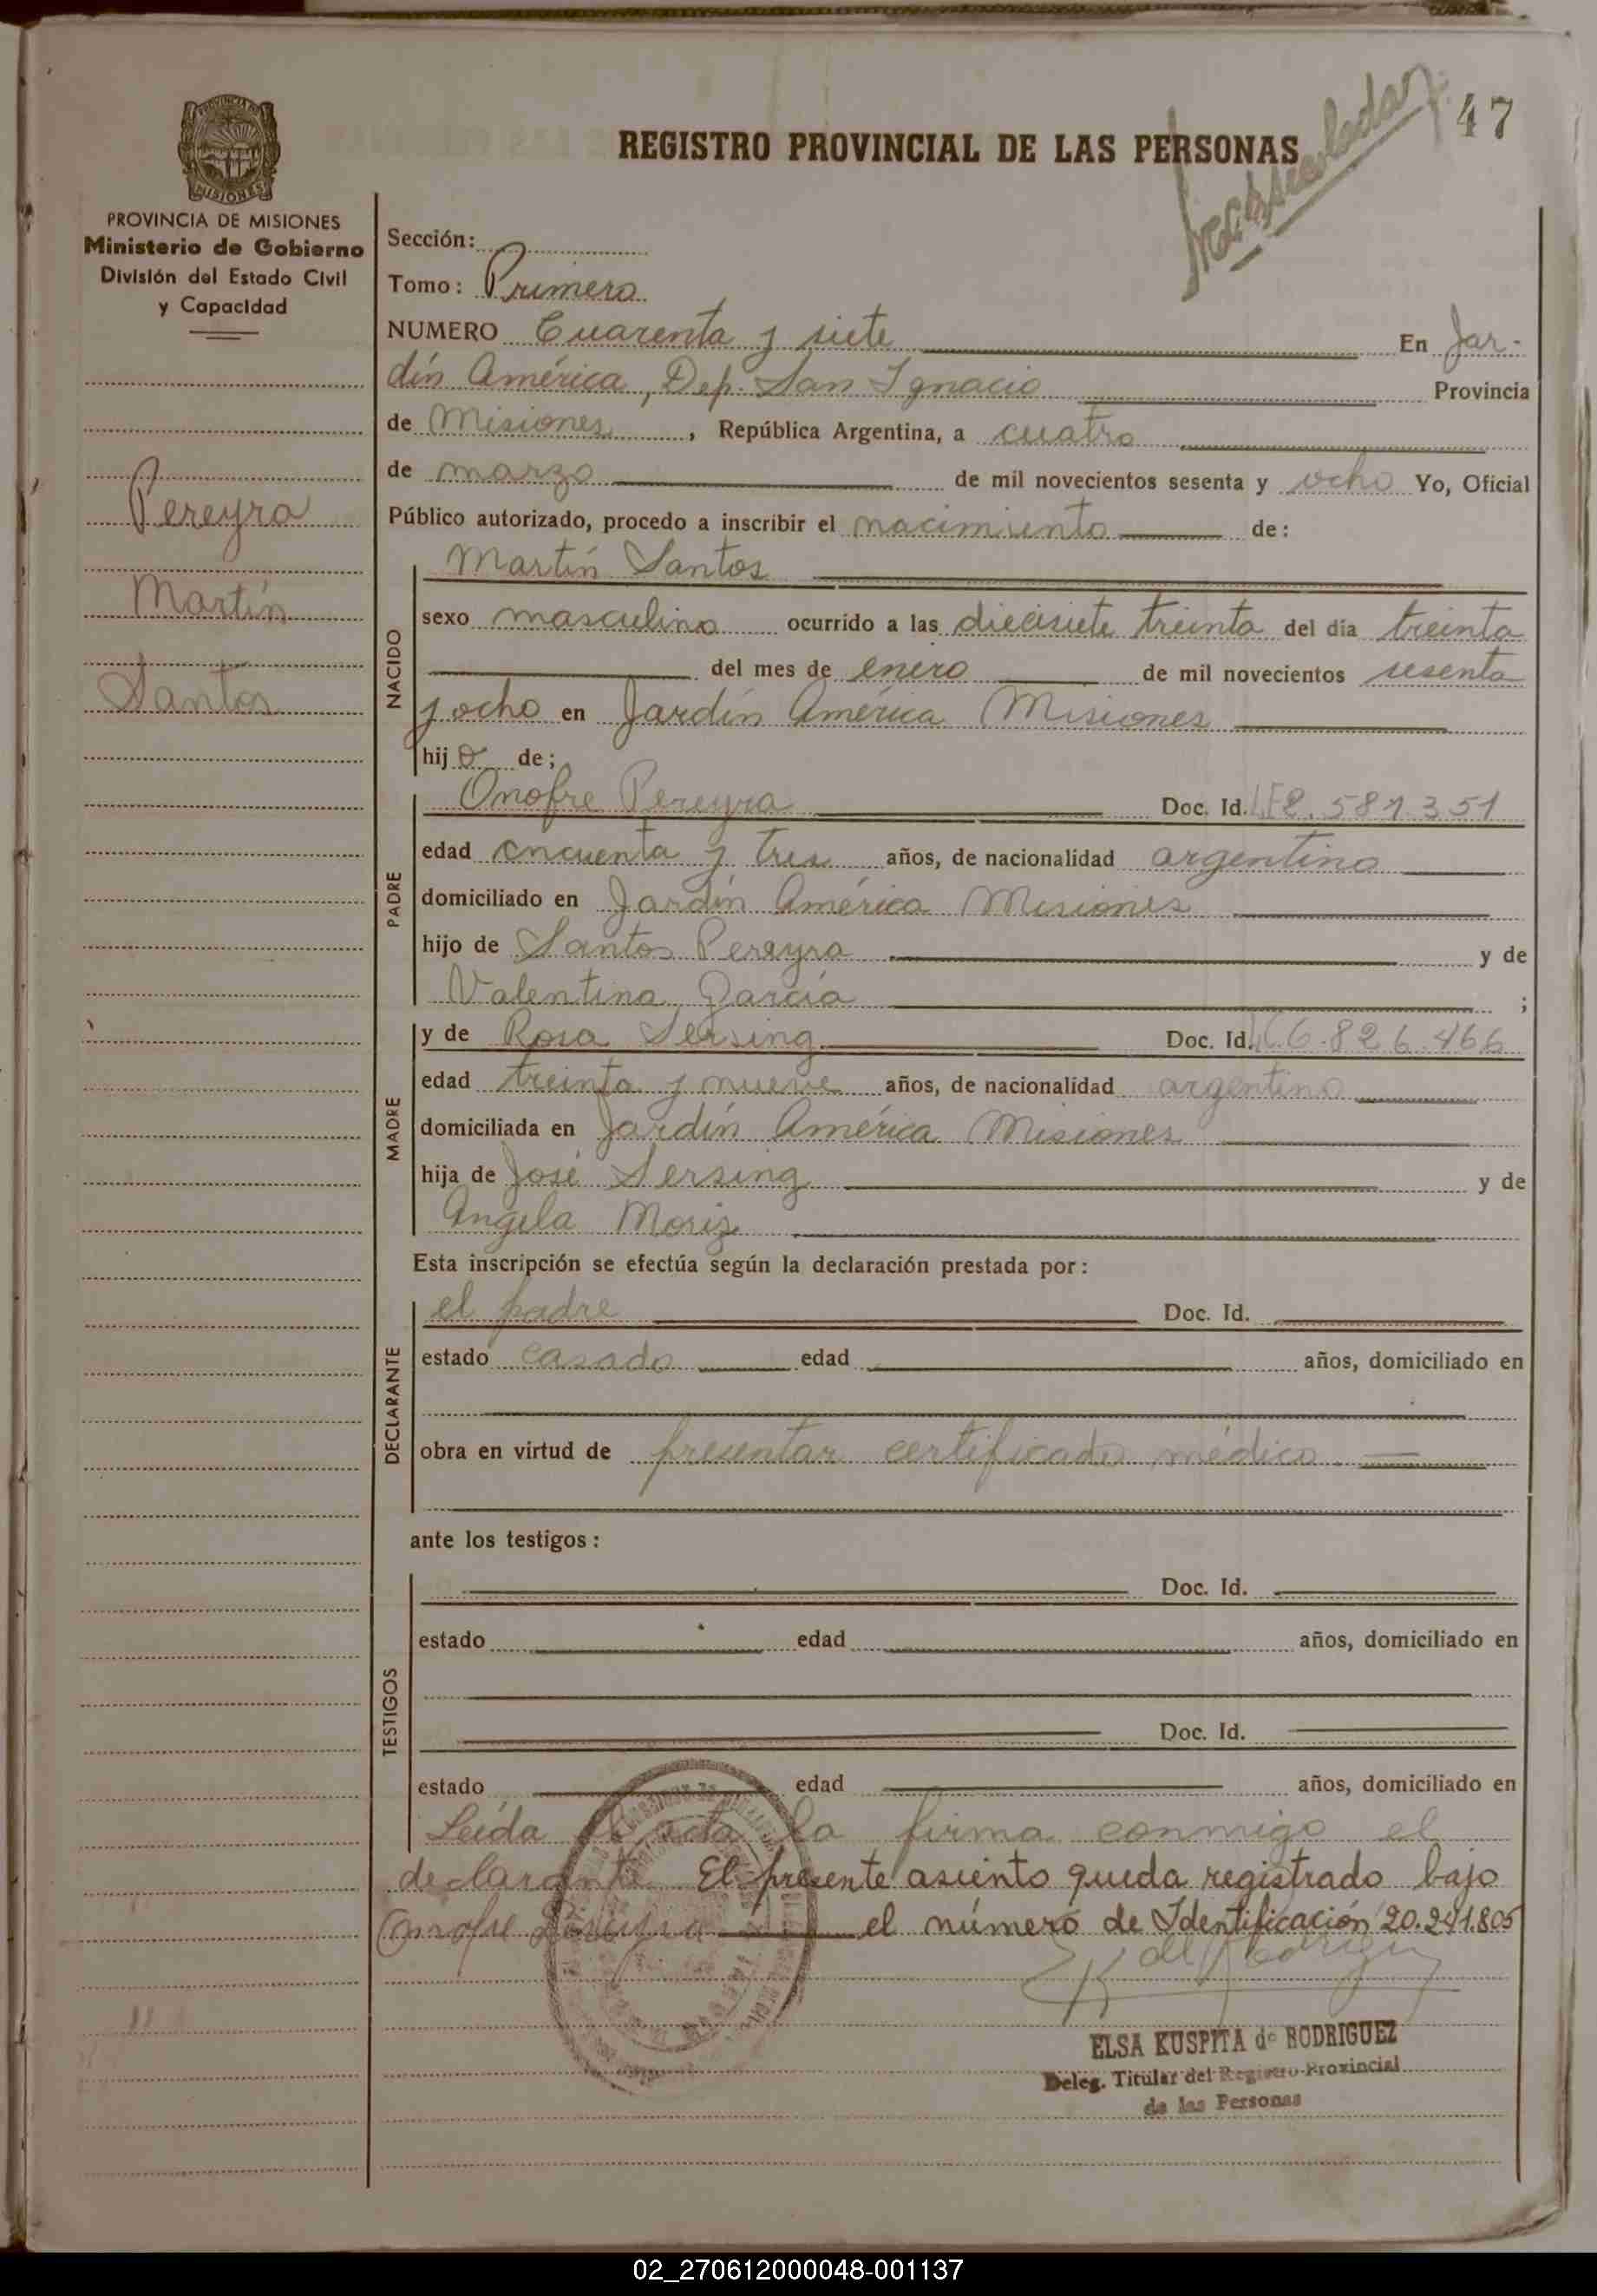 47
REGISTRO PROVINCIAL DE LAS PERSONAS
PROVINCIA DE MISIONES
Ministerio de Gobierno
División del Estado Civil
y Capacidad
Pereyra
Martín
Santos
Sección:
Tomo: Primero
NUMERO Cuarenta y siete En Jar-
dín América, Dep. San Ignacio Provincia
de Misiones, República Argentina, a cuatro
de marzo de mil novecientos sesenta y ocho Yo, Oficial
Público autorizado, procedo a inscribir el nacimiento de:
Martín Santos
NACIDO
sexo masculino ocurrido a las diecisiete treinta del día treinta
del mes de enero de mil novecientos sesenta
y ocho en Jardín América Misiones
hijo de;
PADRE
Onofre Pereyra Doc. Id. LE 2.581.351
edad cncuenta y tres años, de nacionalidad argentina
domiciliado en Jardín América Misiones
hijo de Santos Pereyra y de
Valentina García ;
MADRE
y de Rosa Sersing Doc. Id. LC 6.826.466
edad treinta y nueve años, de nacionalidad argentina
domiciliada en Jardín América Misiones
hija de José Sersing y de
Angela Moriz
Esta inscripción se efectúa según la declaración prestada por:
DECLARANTE
el padre Doc. Id.
estado casado edad años, domiciliado en
obra en virtud de presentar certificado médico.
ante los testigos:
TESTIGOS
Doc. Id.
estado edad años, domiciliado en
Doc. Id.
estado edad años, domiciliado en
Leída el acta la firma conmigo el
declarante. El presente asiento queda registrado bajo
Onofre Pereyra el número de Identificación 20.241.805
ELSA KUSPITA de RODRIGUEZ
Deleg. Titular del Registro Provincial
de las Personas
02_270612000048-001137